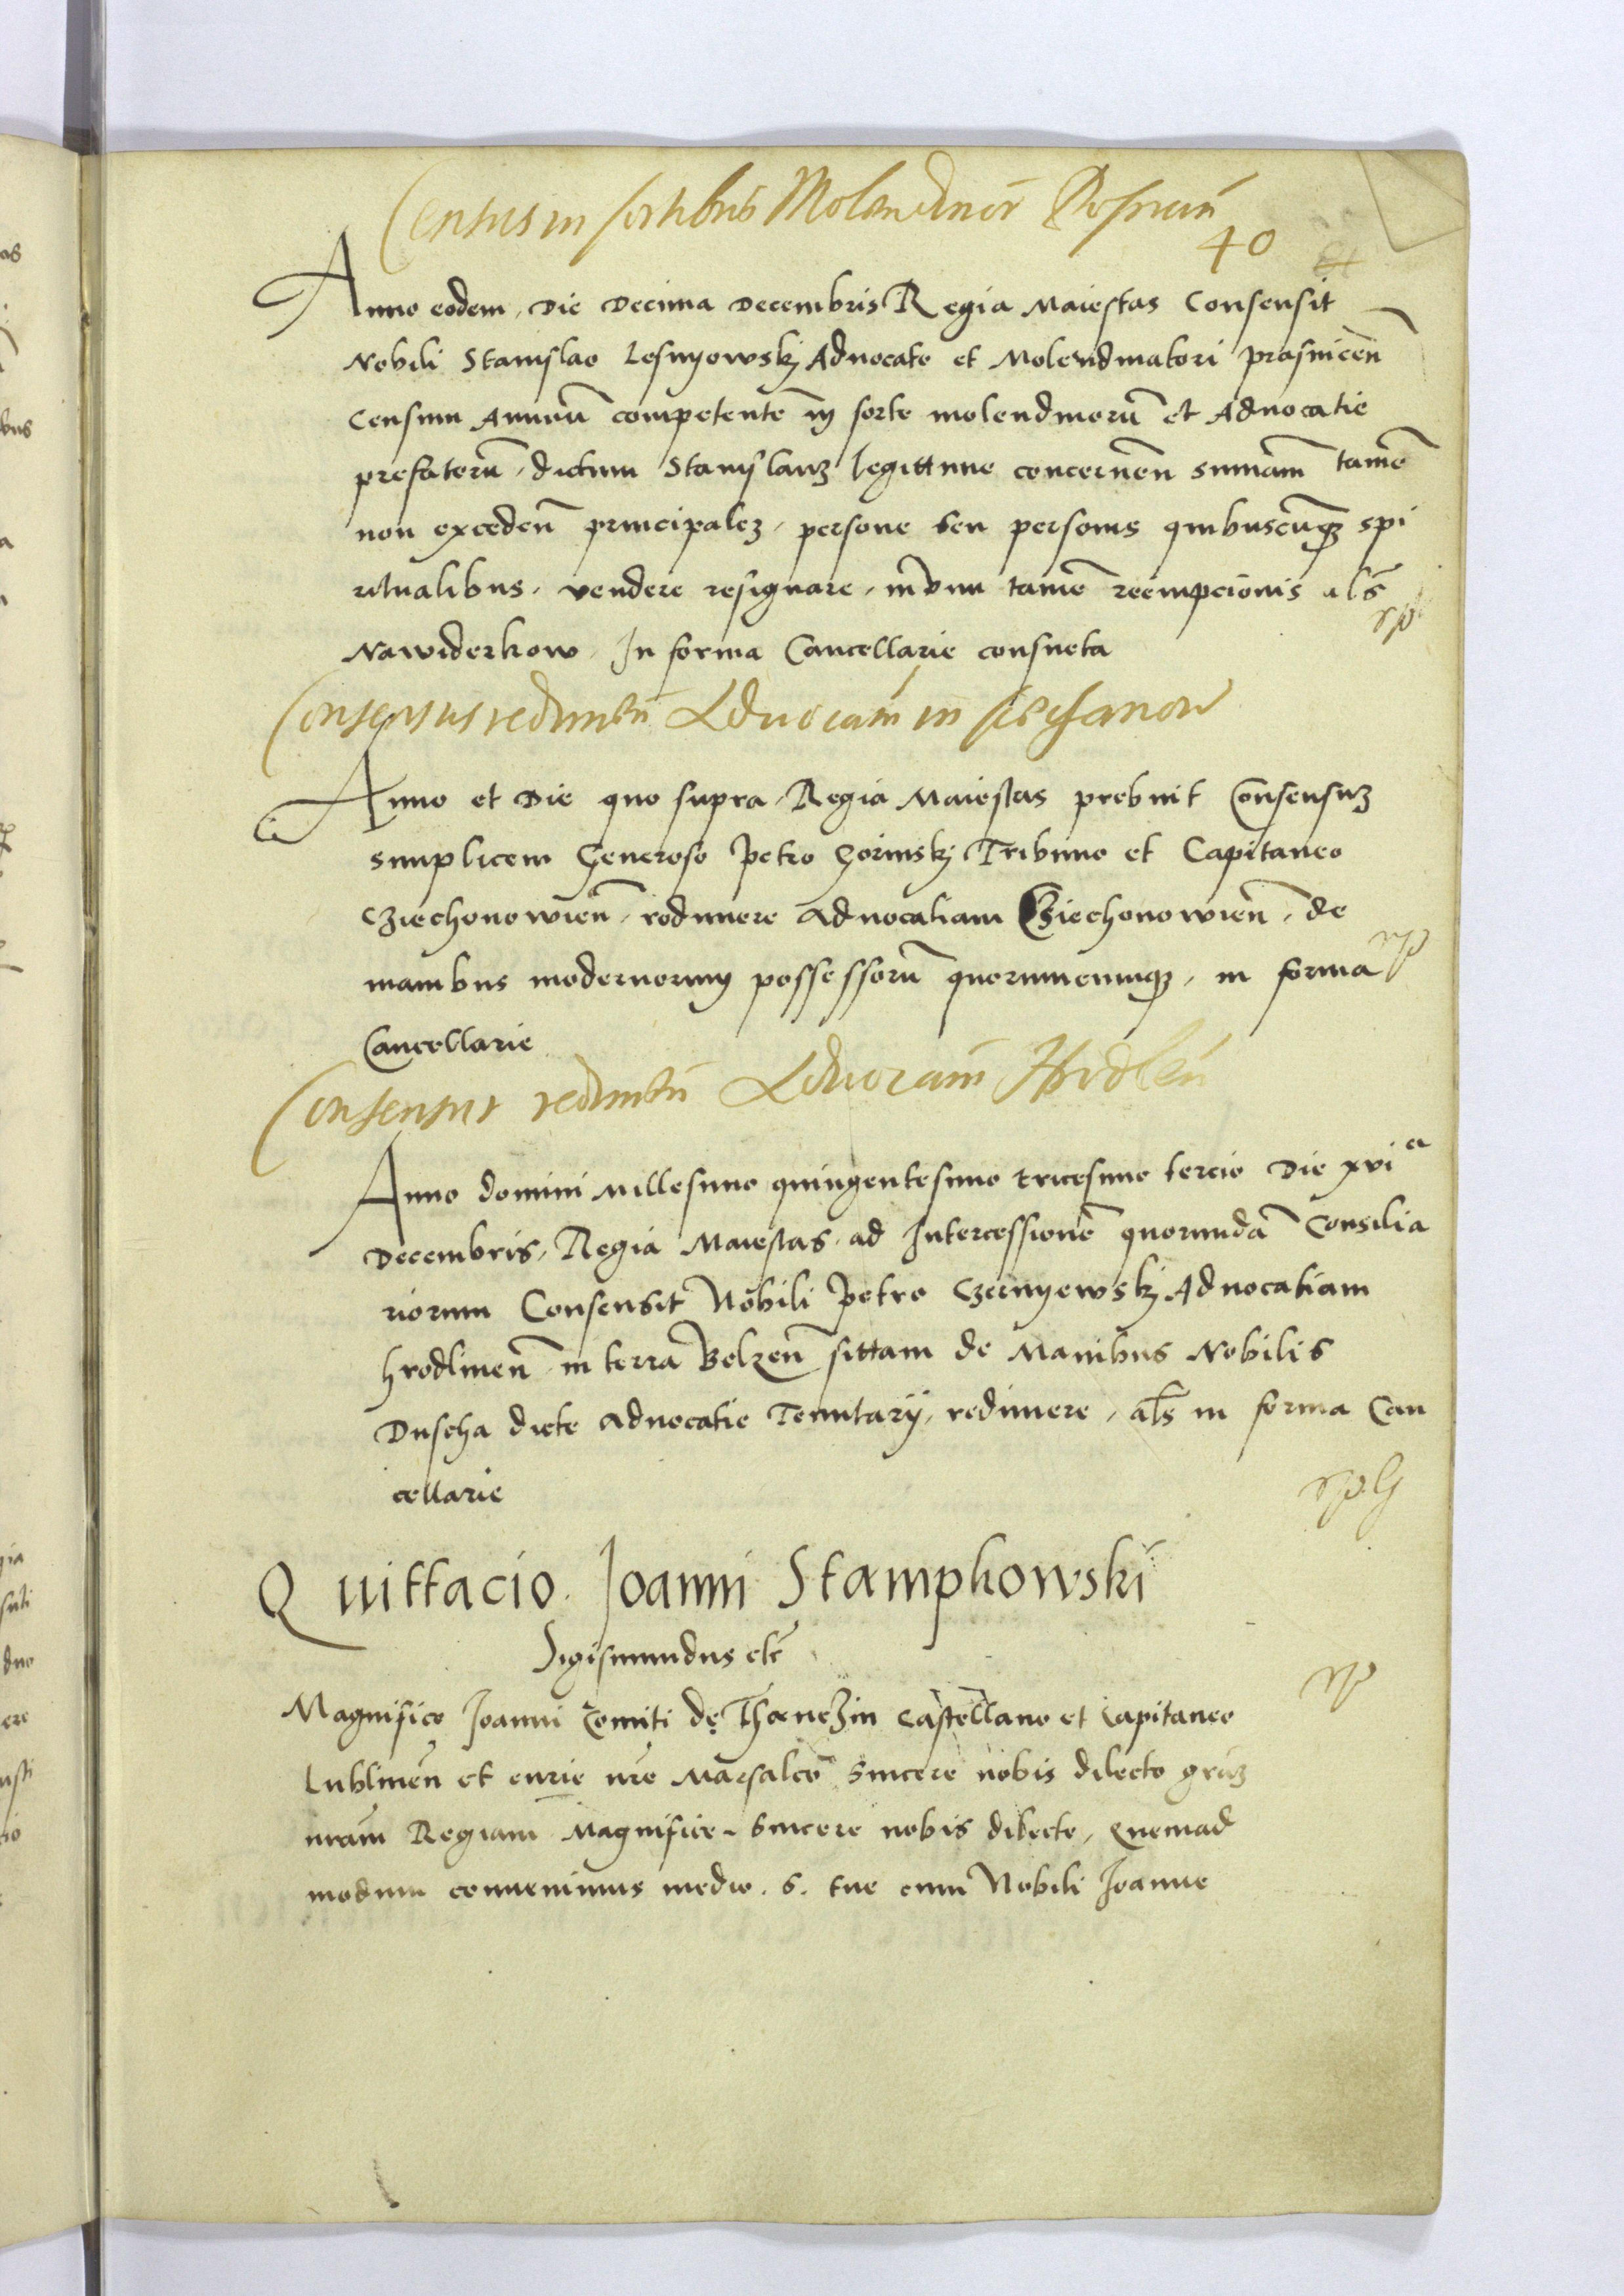 Census in sortibus Molendinor Prasnicen
40
Anno eodem, Die Decima Decembris Regia Maiestas Consensit
Nobili Stanislao Lesnyowskj Aduocato et Molendinatori prasnicen̄
Censum Annuū competentē in sorte molendinorū et Aduocatie
prefatorū, dictum Stanislauȝ legittime concernen̄ summam̄ tamē
non exceden̄ principaleȝ, persone seu personis quibuscūqȝ spi
ritualibus, vendere resignare, in vim tamē reempcionis als̄
Nawiderkow, In forma Cancellarie consueta
rp
Consensus redimen̄ Aduocatiam̄ in Ciechanow
Anno et Die quo supra, Regia Maiestas prebuit Consensuȝ
simplicem Generoso Petro Gorinskj Tribuno et Capitaneo
Cziechonowien̄, redimere aduocatiam Cziechonowien̄, de
manibus modernorum possessorū quorumcumqȝ, in forma
Cancellarie
rp
Consensus redimen̄ Aduocatiam̄ Hrodlen̄
Anno domini Millesimo quingentesimo tricesimo tercio Die xvi a
Decembris, Regia Maiestas, ad Intercessionē quorundā Consilia
riorum Consensit Nobili Petro Czernyewskj Aduocatiam
hrodlinen̄, in terra Belzen̄ sittam de Manibus Nobilis
Duscha dicte aduocatie Tenutarij, redimere, als̄ in forma Can
cellarie
Quittacio Joanni Stampkowski
Sigismundus etc̄
rp
Magnifico Joanni Comiti de Thanczin Castellano et Capitaneo
Lublinen̄ et curie nr̄e Marsalco sincere nobis dilecto grāȝ
nrām Regiam Magnifice, sincere nobis dilecte, Quemad
modum conuenimus medio. S. tue cum Nobili Joanne